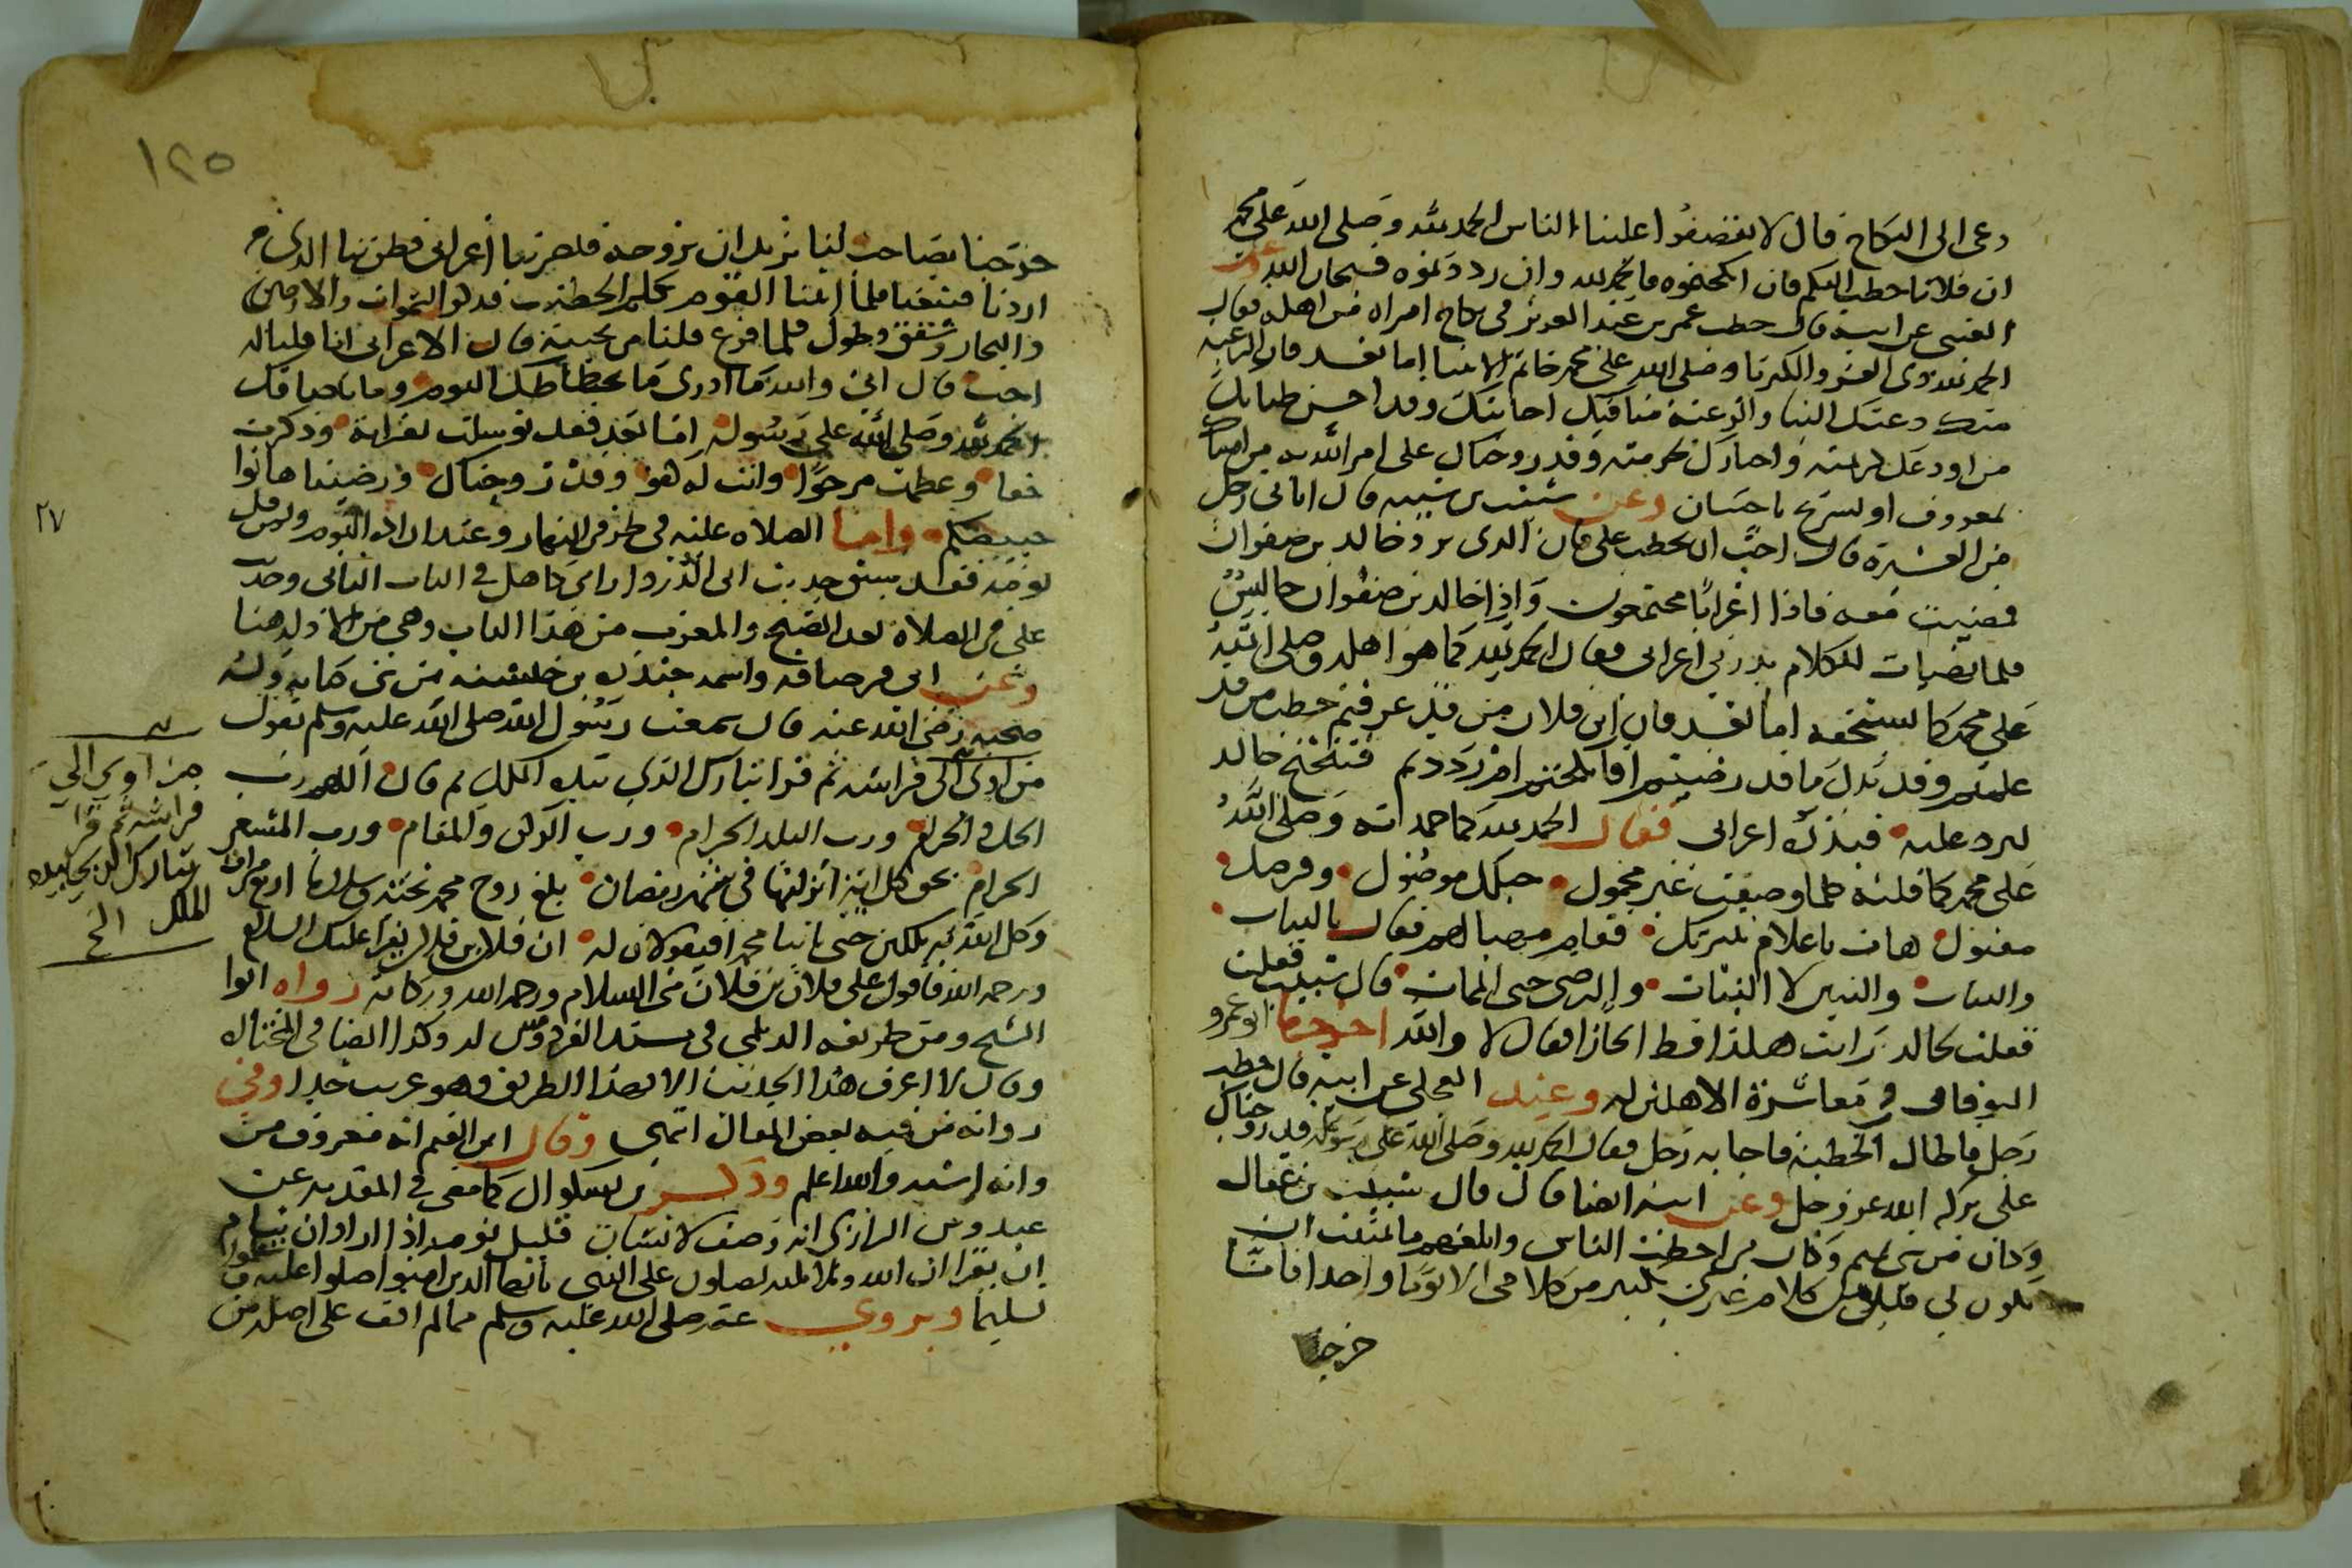 دعى الى النكاح قال لا تفضفضوا علينا الناس الحمد لله وصلى الله على محمد
ان فلانا خطب اليكم فان انكحتموه فالحمد لله وان رددتموه فسبحان الله وعن
العتبي عن ابيه قال خطب عمر بن عبد العزيز في نكاح امراة من اهله فقال
الحمد لله ذي العز والكبريا وصلى الله على محمد خاتم الانبيا اما بعد فان الرغبة
منك دعتك الينا والرغبة منا فيك اجابتك وقد احسن ظنا بك
من اودعك كريمته واختارك لحرمته وقد زوجناك على امر الله به من امساك
بمعروف او تسريح باحسان وعن شبيب بن شيبه قال اتاني رجل
من العشيرة قال احب ان تخطب علي قال الذي يرد خالد بن صفوان
فمضيت معه فاذا اعرابا مجتمعون واذا خالد بن صفوان جالس
فلما تهيات للكلام بدرني اعرابي فقال الحمد لله كما هو اهله وصلى الله
على محمد كما يستحقه اما بعد فان ابن فلان من قد عرفتم خطب من قد
علمتم وقد بذل ما قد رضيتم افانكحتم ام رددتم فتنحنح خالد
ليرد عليه فبدره اعرابي فقال الحمد لله كما حمدته وصلى الله
على محمد كما قلته كلما وصفت غير مجهول حبلك موصول وفرضك
مقبول هات يا غلام نثرك فقام مصبا لهم فقال بالثبات
والبنات والبنين لا البنات والرضى حتى الممات قال شبيب فقلت
فقلت لخالد رايت هكذا قط ايجازا فقال لا والله اخرجهما ابو عمرو
النوقاتي في معاشرة الاهلين له وعنده العجلي عن ابيه قال خطب
رجل فاطال الخطبة فاجابه رجل فقال الحمد لله وصلى الله على رسوله قد زوجناك
على بركة الله عز وجل وعن ابيه ايضا قال قال شبيب بن عقال
وكان من بني تميم وكان من اخطب الناس وابلغهم ما تمنيت ان
يكون لي قليل من كلام غيري بكثير من كلامي الا يوما واحدا فانا
خرجنا
١٢٥
خرجنا بصاحب لنا نريد ان نزوجه فلحق بنا اعرابي وظن بنا الذي
اردنا فتبعنا فلما اتينا القوم تكلم الخطيب فذكر السموات والارضين
والبحار وشقق وطول فلما فرغ قلنا من يجيبه قال الاعرابي انا قلنا له
اجب قال اني والله ما ادري ما تخطاطك اليوم وما تلحياقك
الحمد لله وصلى الله على رسوله اما بعد فقد توسلت بقرابة وذكرت
حقا وعظمت مرجوا وانت له كفو وقد زوجناك ورضينا هاتوا
خبيصكم واما الصلاة عليه في طرفي النهار وعند ارادة النوم ولمن قل
نومه فقد سبق حديث ابي الدرداء وابي كاهل في الباب الثاني وحديث
علي في الصلاة بعد الصبح والمغرب من هذا الباب وهي من اول هنا
وعن ابي قرصافة واسمه جندرة بن خيشنة من بني كنانة وله
صحبة رضي الله عنه قال سمعت رسول الله صلى الله عليه وسلم يقول
من اوى الى فراشه ثم قرا تبارك الذي بيده الملك ثم قال اللهم رب
الحل والحرام ورب البلد الحرام ورب الركن والمقام ورب المشعر
الحرام بحق كل اية انزلتها في شهر رمضان بلغ روح محمد تحية وسلاما اربع مرات
وكل الله به ملكين حتى ياتيا محمدا فيقولان له ان فلان بن فلان يقرا عليك السلام
ورحمة الله فاقول على فلان بن فلان مني السلام ورحمة الله وبركاته رواه ابوا
الشيخ ومن طريقه الديلمي في مسند الفردوس له وكذا الضيا في المختارة
وقال لا اعرف هذا الحديث الا بهذا الطريق وهو غريب جدا وفي
رواته من فيه بعض المقال انتهى وقال ابن القيم انه معروف من
وانه اشبه والله اعلم وذكر بن بشكوال كما مضى في المقدمة عن
عبدوس الرازي انه وصف لانسان قليل نومه اذا اراد ان ينام
ان يقرا ان الله وملائكته يصلون على النبي يا ايها الذين امنوا صلوا عليه وسلموا
تسليما ويروى عنه صلى الله عليه وسلم مما لم اقف على اصله من
٢٧
من اوى الى
فراشه ثم قرا
تبارك الذي بيده
الملك الخ